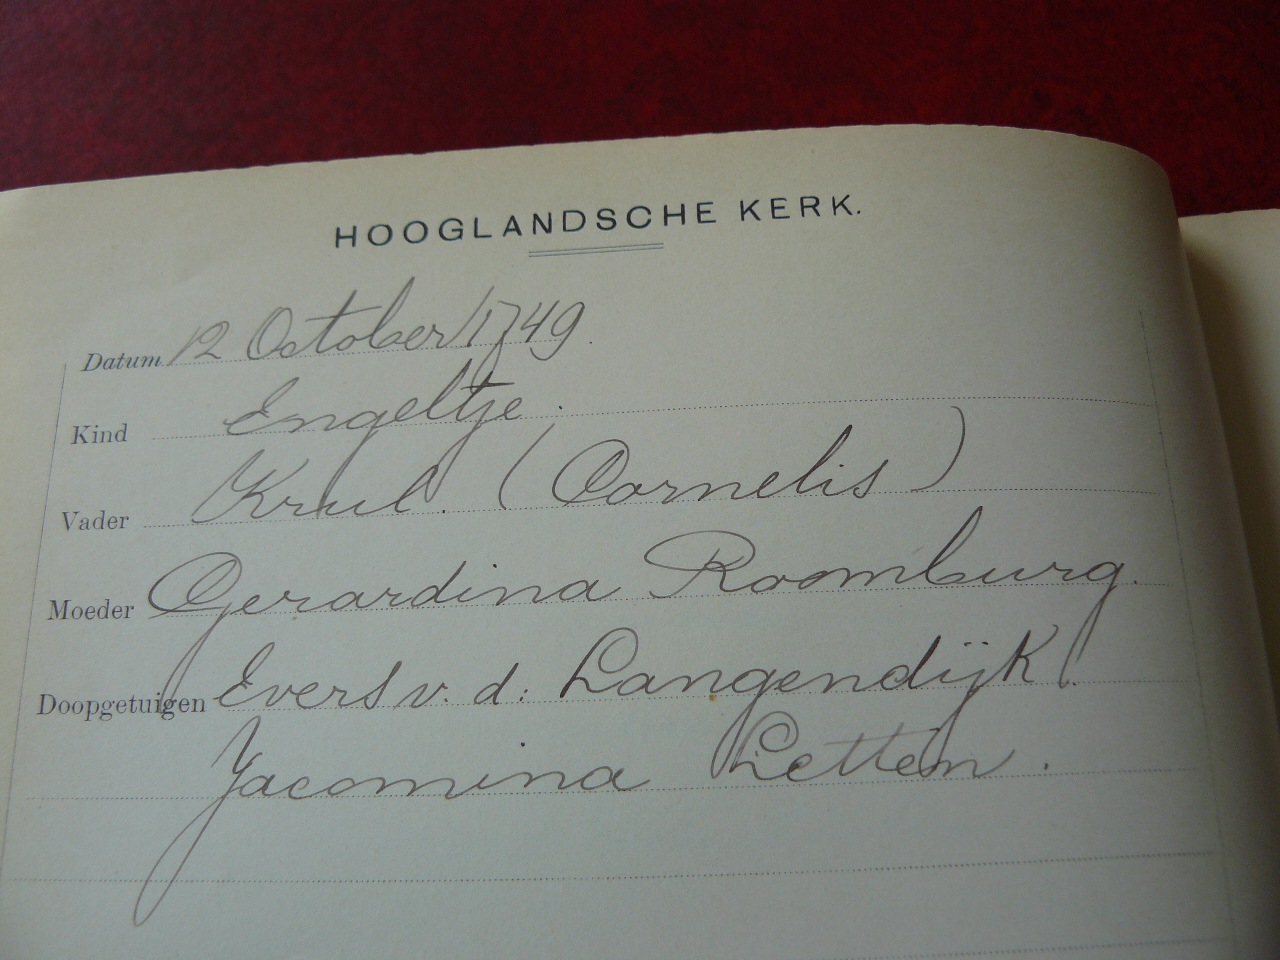 HOOGLANDSCHE KERK.
Datum 12 October 1749.
Kind Engeltje.
Vader Krul. (Cornelis)
Moeder Gerardina Roomburg.
Doopgetuigen Evers v. d: Langendijk.
Jacomina Letten.